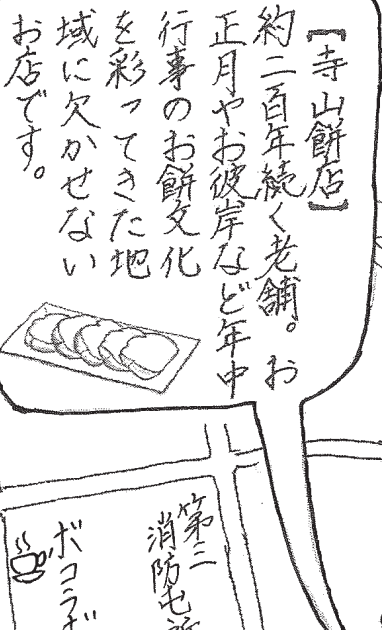 【寺山餅店】
約二百年続く老舗。お
正月やお彼岸など年中
行事のお餅文化
を彩ってきた地
域に欠かせない
お店です。
第三
消防屯所
ボコラ